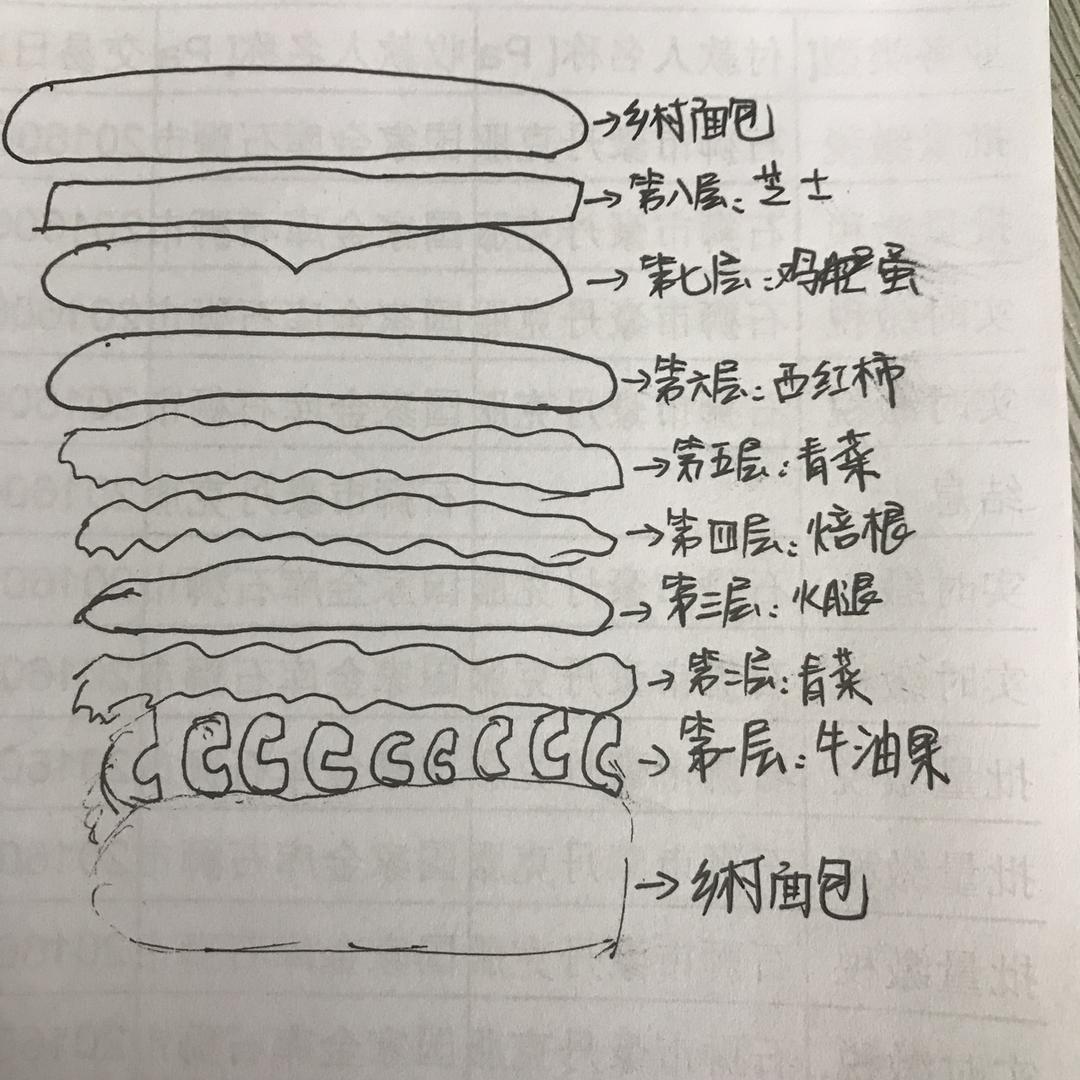 乡村面包
第八层：芝士
第七层：鸡蛋
第六层：西红柿
第五层：青菜
第四层：焙根
第三层：火腿
第二层：青菜
第一层：牛油果
乡村面包